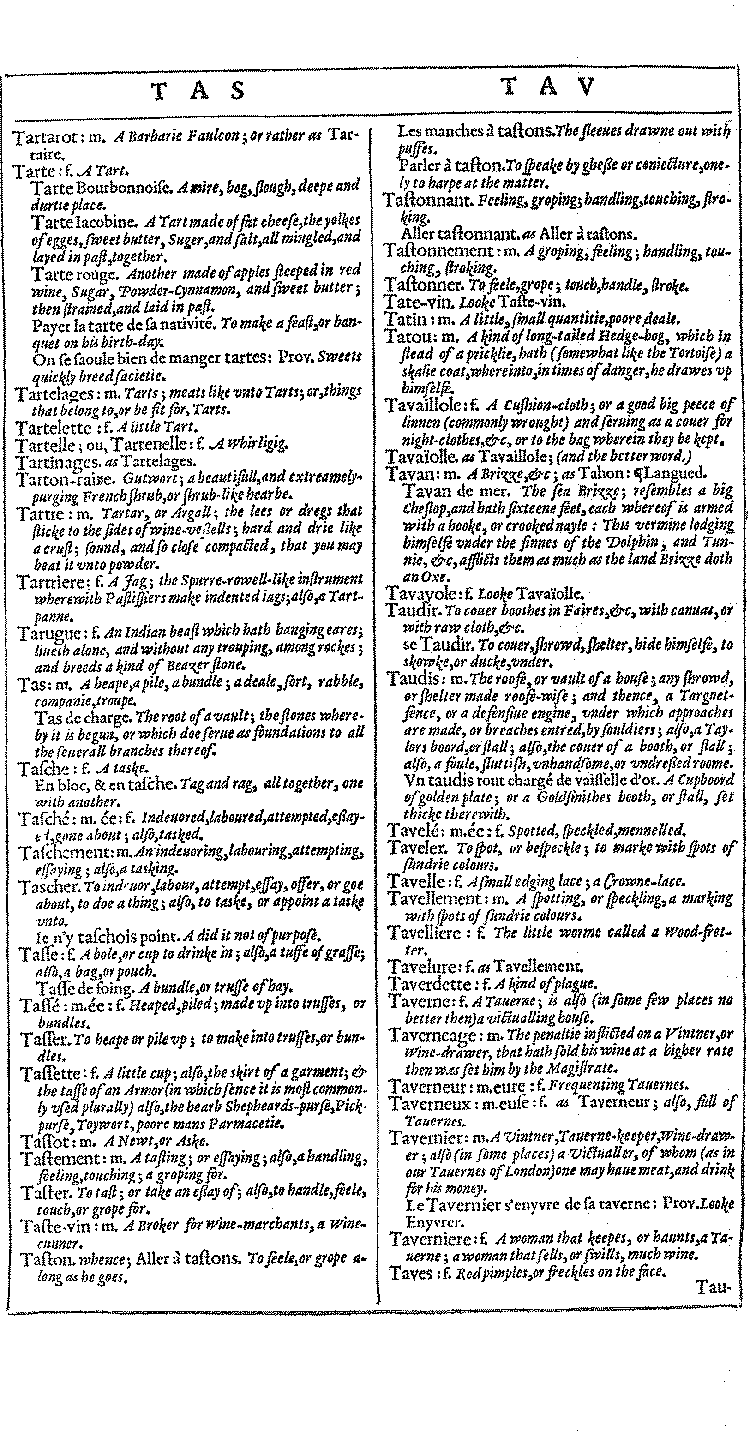 T A S
Tartarot: m. A Barbarie Faulcon; or rather as Tar-
taire.
Tarte: f. A Tart.
Tarte Bourbonnoiſe. A mire, bog, ſlough, deepe and
durtie place.
Tarte Iacobine. A Tart made of fat cheeſe, the yolkes
of egges, ſweet butter, Suger, and ſalt, all mingled, and
layed in paſt, together.
Tarte rouge. Another made of apples ſteeped in red
wine, Sugar, Powder-Cynnamon, and ſweet butter;
then ſtrained, and laid in paſt.
Payer la tarte de ſa nativité. To make a feaſt, or ban-
quet on his birth-day.
On ſe ſaoule bien de manger tartes: Prov. Sweets
quickly breed ſacietie.
Tartelages: m. Tarts; meats like vnto Tarts; or, things
that belong to, or be fit for, Tarts.
Tartelette: f. A little Tart.
Tartelle; ou, Tartenelle: f. A whirligig.
Tartinages. as Tartelages.
Tarton-raire. Gutwort; a beautifull, and extreamely-
purging French ſhrub, or ſhrub-like hearbe.
Tartre: m. Tartar, or Argall; the lees or dregs that
ſticke to the ſides of wine-veſſells; hard and drie like
a cruſt; ſound, and ſo cloſe compacted, that you may
beat it vnto powder.
Tartriere: f. A Jag; the Spurre-rowell-like inſtrument
wherewith Paſtiſſiers make indented iags; alſo, a Tart-
panne.
Tarugue: f. An Indian beaſt which hath hanging eares;
liueth alone, and without any trouping, among rockes;
and breeds a kind of Beazer ſtone.
Tas: m. A heape, a pile, a bundle; a deale, ſort, rabble,
companie, troupe.
Tas de charge. The root of a vault; the ſtones where-
by it is begun, or which doe ſerue as foundations to all
the ſeuerall branches thereof.
Taſche: f. A taske.
En bloc, & en taſche. Tag and rag, all together, one
with another.
Taſché: m. ée: f. Indeuored, laboured, attempted, eſſay-
ed, gone about; alſo, tasked.
Taſchement: m. An indeuoring, labouring, attempting,
eſſaying; alſo, a tasking.
Taſcher. To indeuor, labour, attempt, eſſay, offer, or goe
about, to doe a thing; alſo, to taske, or appoint a taske
vnto.
Ie n'y taſchois point. A did it not of purpoſe.
Taſſe: f. A bole, or cup to drinke in; alſo, a tuffe of graſſe;
alſo, a bag, or pouch.
Taſſe de foing. A bundle, or truſſe of hay.
Taſſé: m. ée: f. Heaped, piled; made vp into truſſes, or
bundles.
Taſſer. To heape or pile vp; to make into truſſes, or bun-
dles.
Taſſette: f. A little cup; alſo, the skirt of a garment; &
the taſſe of an Armor (in which ſence it is moſt common-
ly vſed plurally) alſo, the hearb Shepheards-purſe, Pick-
purſe, Toywort, poore mans Parmacetie.
Taſſot: m. A Newt, or Aske.
Taſtement: m. A taſting; or eſſaying; alſo, a handling,
feeling, touching; a groping for.
Taſter. To taſt; or take an eſſay of; alſo, to handle, feele,
touch, or grope for.
Taſte-vin: m. A Broker for wine-marchants, a Wine-
cunner.
Taſton. whence; Aller à taſtons. To feele, or grope a-
long as he goes.
T A V
Les manches à taſtons. The ſleeues drawne out with
puffes.
Parler à taſton. To ſpeake by gheſſe or coniecture, one-
ly to harpe at the matter.
Taſtonnant. Feeling, groping; handling, touching, ſtro-
king.
Aller taſtonnant. as Aller à taſtons.
Taſtonnement: m. A groping, feeling; handling, tou-
ching, ſtroking.
Taſtonner. To feele, grope; touch, handle, ſtroke.
Tate-vin. Looke Taſte-vin.
Tatin: m. A little, ſmall quantitie, poore deale.
Tatou: m. A kind of long-tailed Hedge-hog, which in
ſtead of a pricklie, hath (ſomewhat like the Tortoiſe) a
skalie coat, whereinto, in times of danger, he drawes vp
himſelfe.
Tavaillole: f. A Cuſhion-cloth; or a good big peece of
linnen (commonly wrought) and ſeruing as a couer for
night-clothes, &c, or to the bag wherein they be kept.
Tavaïolle. as Tavaillole; (and the better word.)
Tavan: m. A Brizze, &c; as Tahon: ¶Langued.
Tavan de mer. The ſea Brizze; reſembles a big
Cheſlop, and hath ſixteene feet, each whereof is armed
with a hooke, or crooked nayle: This vermine lodging
himſelfe vnder the finnes of the Dolphin, and Tun-
nie, &c, afflicts them as much as the land Brizze doth
an Oxe.
Tavayole: f. Looke Tavaïolle.
Taudir. To couer boothes in Faires, &c, with canuas, or
with raw cloth, &c.
se Taudir. To couer, ſhrowd, ſhelter, hide himſelfe, to
skowke, or ducke, vnder.
Taudis: m. The roofe, or vault of a houſe; any ſhrowd,
or ſhelter made roofe-wiſe; and thence, a Target-
fence, or a defenſiue engine, vnder which approaches
are made, or breaches entred, by ſouldiers; alſo, a Tay-
lors boord, or ſtall; alſo, the couer of a booth, or ſtall;
alſo, a foule, ſluttiſh, vnhandſome, or vndreſſed roome.
Vn taudis tout chargé de vaiſſelle d'or. A Cupboord
of golden plate; or a Goldſmithes booth, or ſtall, ſet
thicke therewith.
Tavelé: m. ée: f. Spotted, ſpeckled, mennelled.
Taveler. To ſpot, or beſpeckle; to marke with ſpots of
ſundrie colours.
Tavelle: f. A ſmall edging lace; a Crowne-lace.
Tavellement: m. A ſpotting, or ſpeckling, a marking
with ſpots of ſundrie colours.
Tavelliere: f. The little worme called a Wood-fret-
ter.
Tavelure: f. as Tavellement.
Taverdette: f. A kind of plague.
Taverne: f. A Tauerne; is alſo (in ſome few places no
better then) a victualling houſe.
Taverneage: m. The penaltie inflicted on a Vintner, or
Wine-drawer, that hath ſold his wine at a higher rate
then was ſet him by the Magiſtrate.
Taverneur: m. eure: f. Frequenting Tauernes.
Taverneux: m. euſe: f. as Taverneur; alſo, full of
Tauernes.
Tavernier: m. A Vintner, Tauerne-keeper, Wine-draw-
er; alſo (in ſome places) a Victualler, of whom (as in
our Tauernes of London) one may haue meat, and drink
for his money.
Le Tavernier s'enyvre de ſa taverne: Prov. Looke
Enyvrer.
Taverniere: f. A woman that keepes, or haunts, a Ta-
uerne; a woman that ſells, or ſwills, much wine.
Taves: f. Red pimples, or freckles on the face.
Tau-